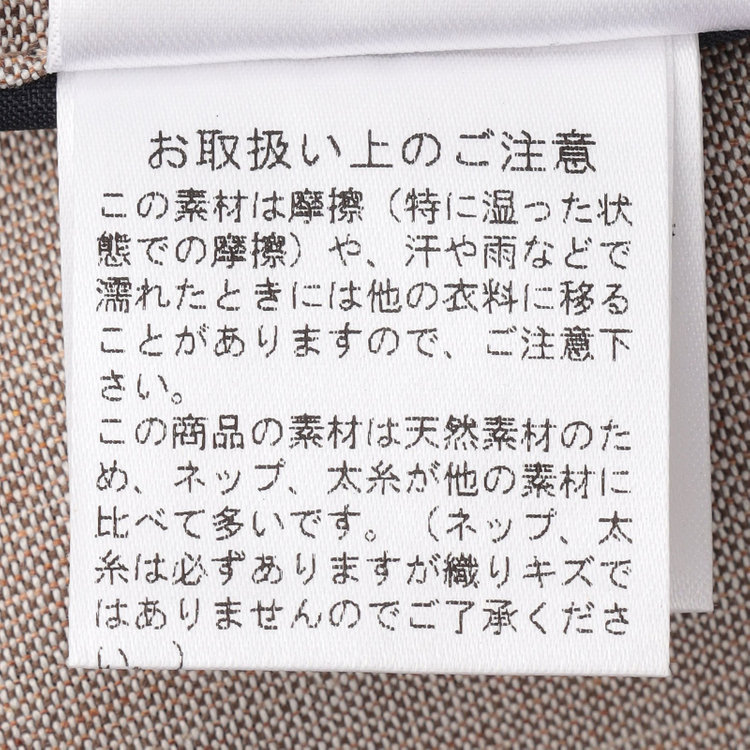 お取扱い上のご注意
この素材は摩擦（特に湿った状
態での摩擦）や、汗や雨などで
濡れたときには他の衣料に移る
ことがありますので、ご注意下
さい。
この商品の素材は天然素材のた
め、ネップ、太糸が他の素材に
比べて多いです。（ネップ、太
糸は必ずありますが織りキズで
はありませんのでご了承くださ
い。）